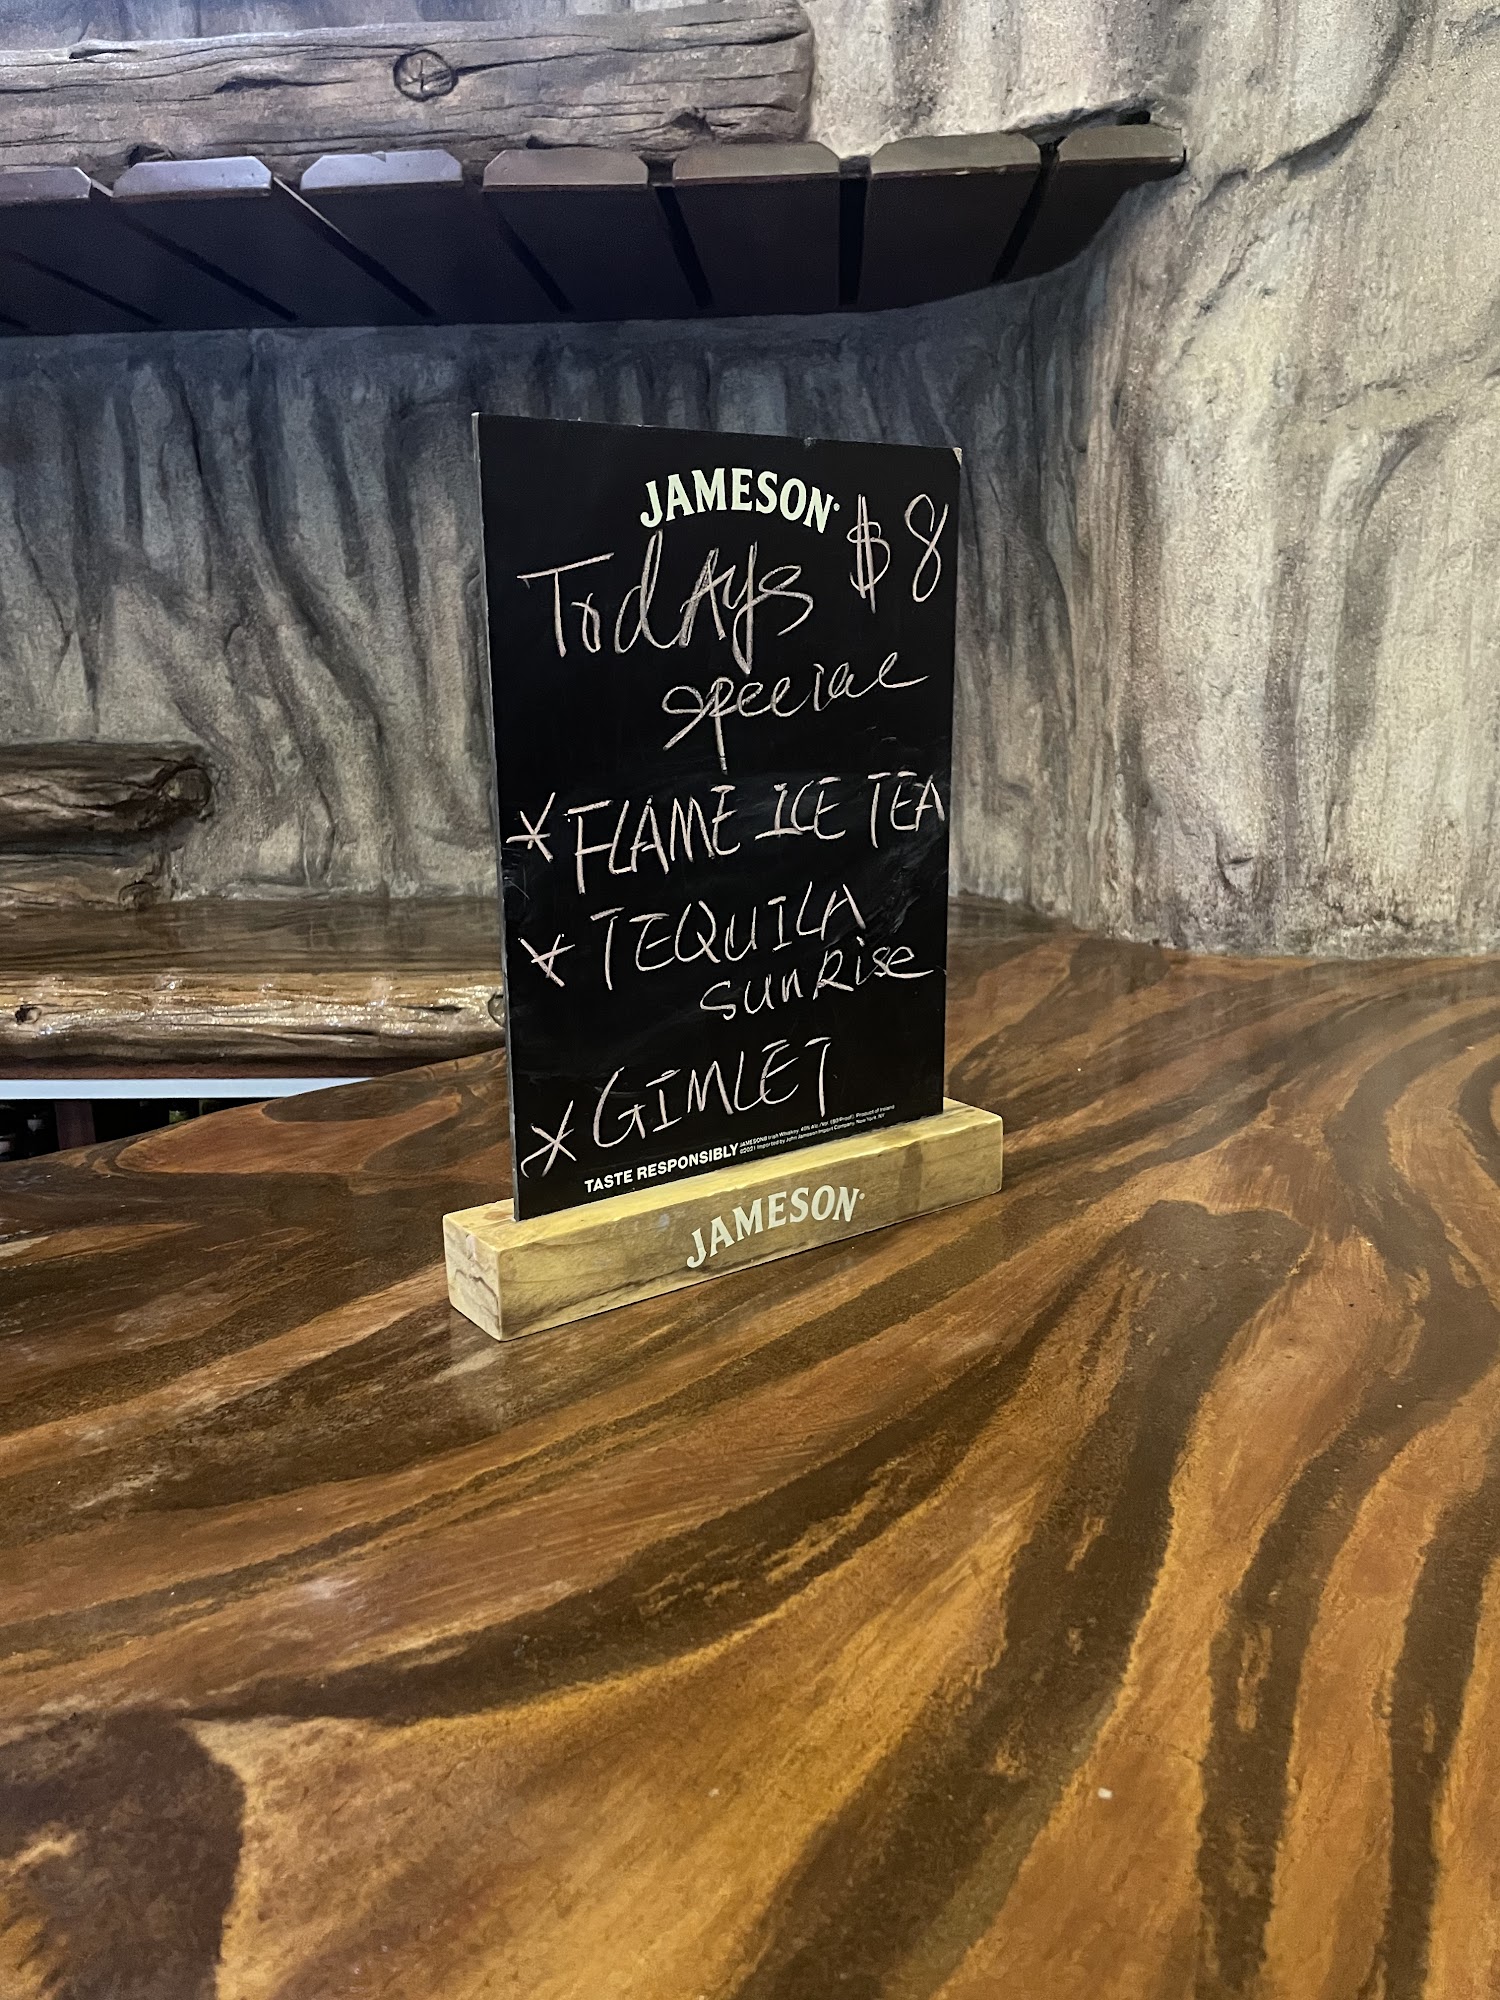 JAMESON
$8
TodAys
special
* FLAME ICE TEA
* TEQUILA
sunRise
* GIMLET
TASTE RESPONSIBLY JAMESON® Irish Whiskey. 40% Alc./Vol. (80 Proof). Product of Ireland
©2021 Imported by John Jameson Import Company, New York, NY
JAMESON